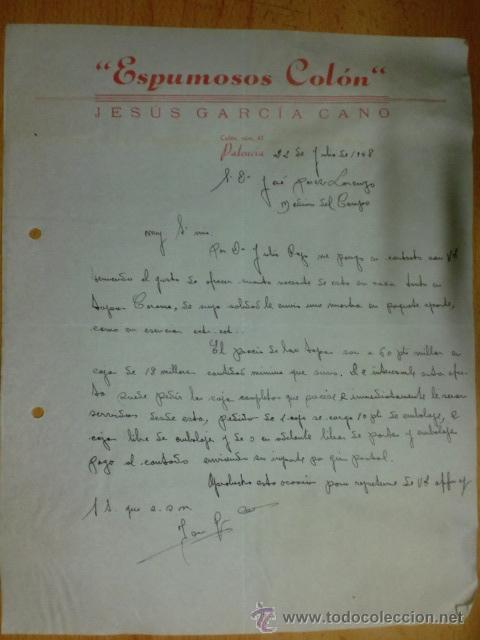 "Espumosos Colón"
JESÚS GARCÍA CANO
Colón, núm. 41
Palencia 22 de Julio de 1948
S. D. José Lorenzo
Medina del Campo
Muy Sr. mio.
Por D. Julio me pongo en contacto con Vd
teniendo el gusto de ofrecer cuanto necesite de esta su casa tanto en
tapon Corona, de cuya calidad le envio una muestra en paquete aparte,
como en esencia ect. ect.
El precio de los tapones son a 60 pts millar en
caja de 18 millares cantidad minima que sirvo. Si le interesase esta
puede pedir las cajas completas que precise e inmediatamente le seran
servidas desde esta, pedido de 1 caja se carga 10 pts de embalaje, 2
cajas libre de embalaje y de 3 en adelante libres de portes y embalaje
Pago al contado enviando su importe por giro postal.
Aprovecho esta ocasión para repetirme de Vd affmo
S. S. que e. s. m
www.todocoleccion.net